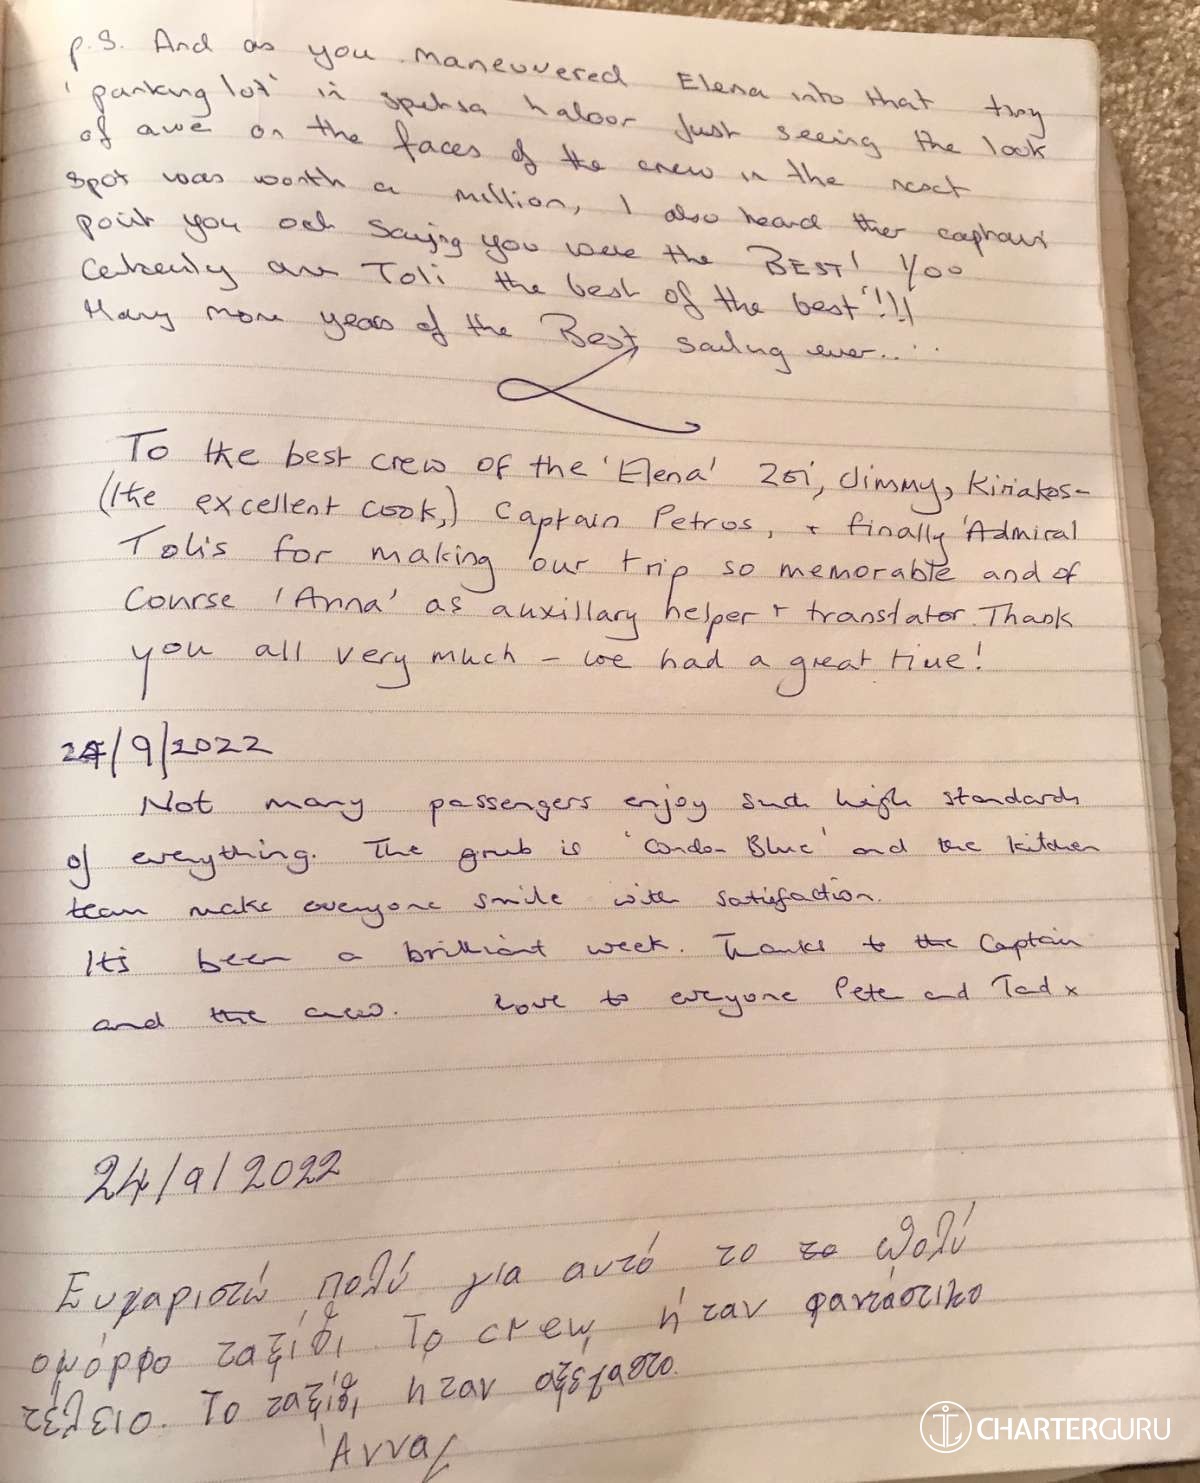 p.s. And as you maneuvered Elena into that tiny
'parking lot' in spetsa habor just seeing the look
of awe on the faces of the crew in the next
spot was worth a million, I also heard ther captain
point you out saying you were the BEST! You
Certenly are Toli the best of the best'!!!
Many more years of the Best sailing ever....
To the best crew of the 'Elena' Zoi, Jimmy, Kiriakos-
(the excellent cook,) Captain Petros, + finally 'Admiral
Tolis for making our trip so memorable and of
Course 'Anna' as auxillary helper + translator. Thank
you all very much – we had a great time!
24/9/2022
Not many passengers enjoy such high standards
of everything. The grub is 'Condon Blue' and the kitchen
team make everyone smile with satisfaction.
It's been a brilliant week. Thanks to the Captain
and the crew. Love to everyone Pete and Tad x
24/9/2022
Ευχαριστώ πολύ για αυτό το το πολύ
όμορφο ταξίδι. Το crew ήταν φανταστικο
τέλειο. Το ταξίδι ήταν
Άννα
CHARTERGURU